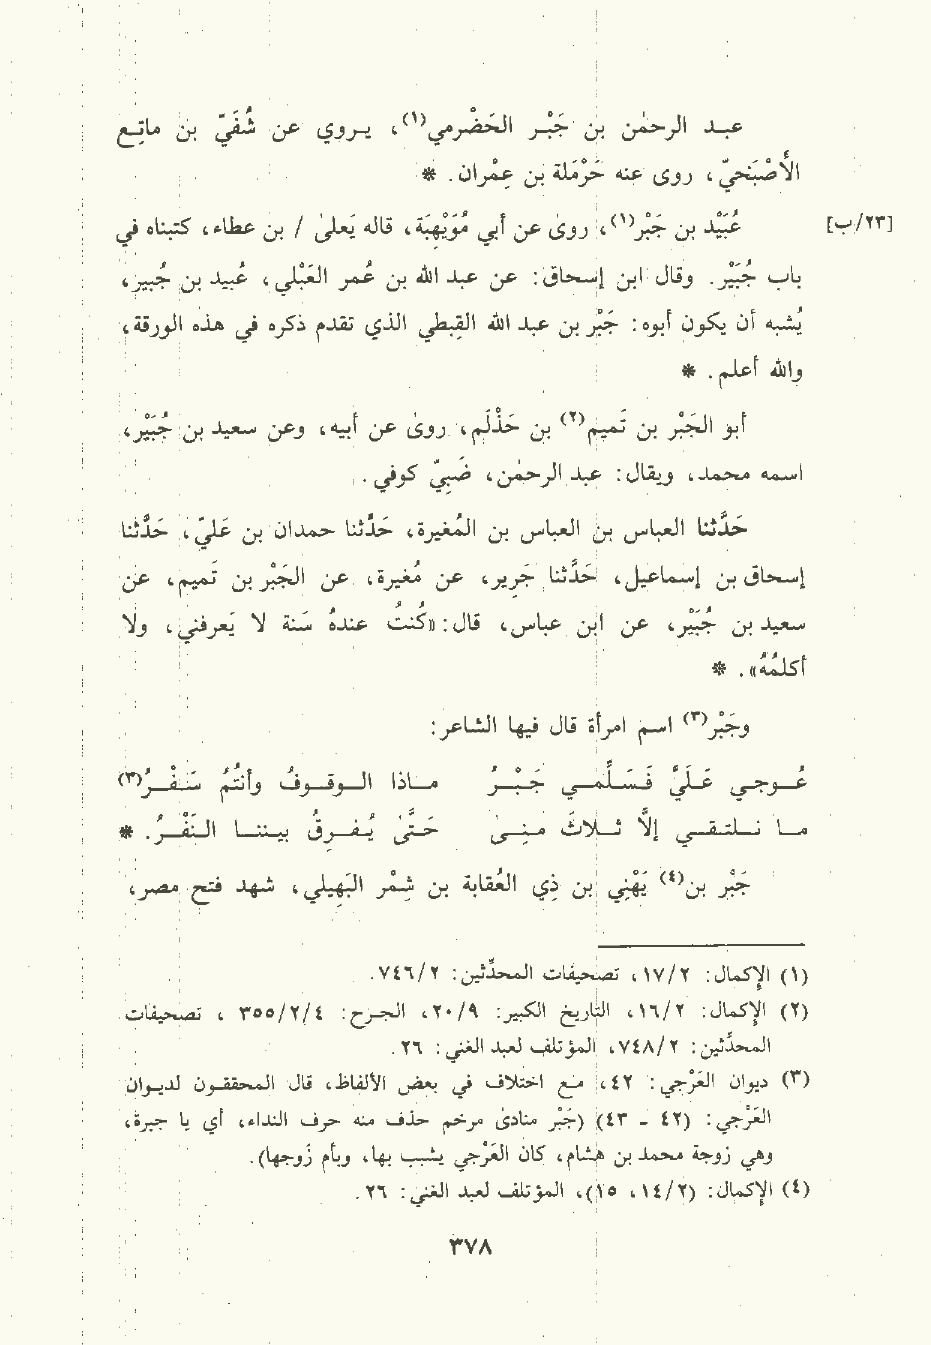 عبد الرحمٰن بن جَبْر الحَضْرمي(١)، يروي عن شُفَيّ بن ماتِع
الأُصْبَحيّ، روى عنه حَرْمَلة بن عِمْران. *
[٢٣/ب] عُبَيْد بن جَبْر(١)، روىٰ عن أبي مُوَيْهِبَة، قاله يَعلىٰ / بن عطاء، كتبناه في
باب جُبَيْر. وقال ابن إسحاق: عن عبد الله بن عُمر العَبْلي، عُبيد بن جُبير،
يُشبه أن يكون أبوه: جَبْر بن عبد الله القِبطي الذي تقدم ذكره في هذه الورقة،
والله أعلم. *
أبو الجَبْر بن تَميم(٢) بن حَذْلَم، روىٰ عن أبيه، وعن سعيد بن جُبَيْر،
اسمه محمد، ويقال: عبد الرحمٰن، ضَبِّيّ كوفي.
حَدَّثنا العباس بن العباس بن المُغيرة، حَدَّثنا حمدان بن عَليّ، حَدَّثنا
إسحاق بن إسماعيل، حَدَّثنا جَرِير، عن مُغيرة، عن الجَبْر بن تَميم، عن
سعيد بن جُبَيْر، عن ابن عباس، قال: «كُنتُ عندهُ سَنة لا يَعرفني، ولا
أكلمُهُ». *
وجَبْر(٣) اسم امرأة قال فيها الشاعر:
عُوجي عَلَيَّ فَسَلِّمي جَبْرُ ماذا الوقوفُ وأنتُمُ سَفْرُ(٣)
ما نلتقي إلَّا ثلاثَ مِنىٰ حَتَّىٰ يُفرقُ بيننا النَفْرُ. *
جَبْر بن(٤) يَهْنِي بن ذِي العُقابة بن شِمْر اليَهِيلي، شهد فتح مصر،
(١) الإكمال: ١٧/٢، تصحيفات المحدِّثين: ٧٤٦/٢.
(٢) الإكمال: ١٦/٢، التاريخ الكبير: ٢٠/٩، الجرح: ٣٥٥/٢/٤ ، تصحيفات
المحدِّثين: ٧٤٨/٢، المؤتلف لعبد الغني: ٢٦.
(٣) ديوان العَرْجي: ٤٢، مع اختلاف في بعض الألفاظ، قال المحققون لديوان
العَرْجي: (٤٢ - ٤٣ (جَبْر) منادىٰ مرخم حذف منه حرف النداء، أي يا جبرة،
وهي زوجة محمد بن هاشم، كان العَرْجي يشبب بها، وبأم زوجها).
(٤) الإكمال: (١٤/٢، ١٥)، المؤتلف لعبد الغني: ٢٦.
٣٧٨